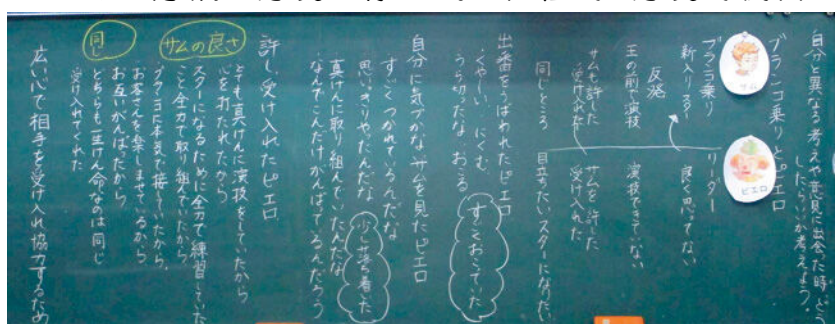 自分と異なる考えや意見に出会った時、どう
したらいいか考えよう。
ブランコ乗りとピエロ
サム
ピエロ
ブランコ乗り
リーダー
新入りスター
良く思ってない
反発
王の前で演技
演技できていない
サムも許した
受け入れた
サムを許した
受け入れた
同じところ
目立ちたいスターになりたい
出番をうばわれたピエロ
くやしい、にくむ
うら切ったな、おこる
すごくおこっていた
自分に気づかないサムを見たピエロ
すごくつかれているんだな
思いきりやったんだな
真けんに取り組んでいたんだな
なんでこんだけがんばっているんだろう
少し落ち着いた
許し、受け入れたピエロ
とても真けんに演技をしていたから
心を打たれたから
サムの良さ
スターになるために全力で練習していた
こと全力で取り組んでいたから
ブランコに本気で接していたから、
お客さんを楽しませているから
お互いがんばったから
同じ
どちらも一生けん命なのは同じ
受け入れてくれた
広い心で相手を受け入れ協力するため